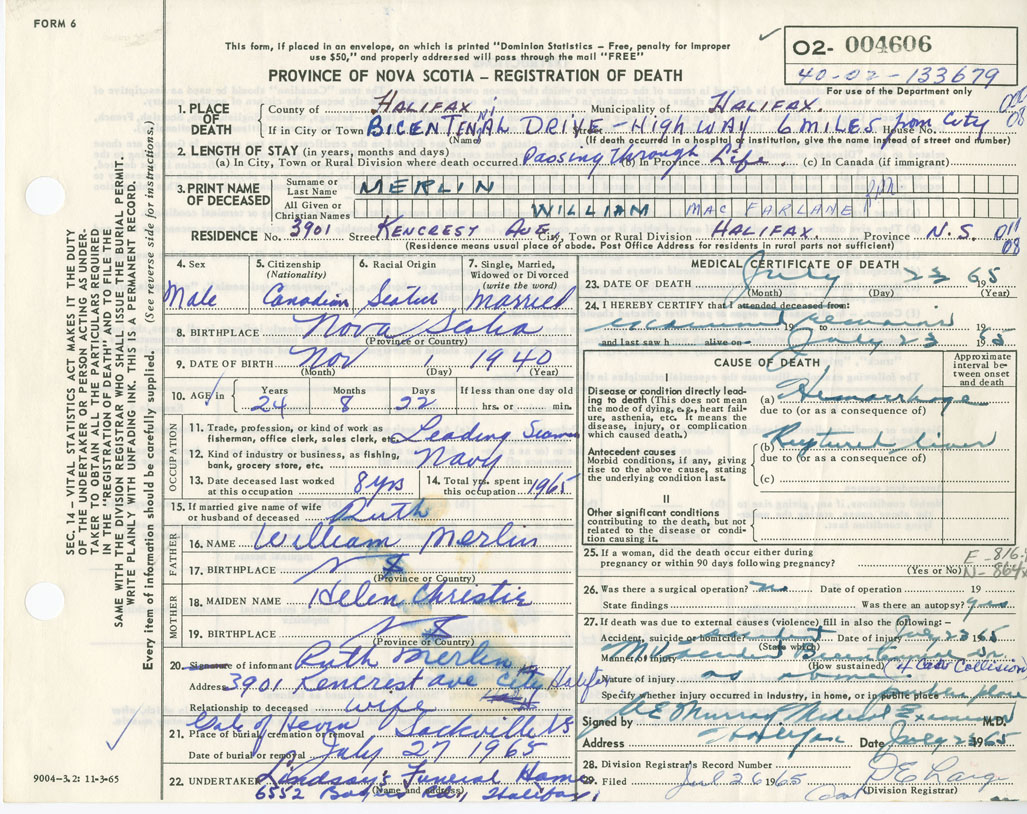 FORM 6
This form, if placed in an envelope, on which is printed "Dominion Statistics – Free, penalty for improper
use $50," and properly addressed will pass through the mail "FREE"
PROVINCE OF NOVA SCOTIA – REGISTRATION OF DEATH
02- 004606
40-02-133679
For use of the Department only
1. PLACE OF DEATH County of HALIFAX Municipality of HALIFAX.
If in City or Town BICENTENNIAL DRIVE – HIGHWAY 6 MILES from City Street House No.
(Name) (If death occurred in a hospital or institution, give the name instead of street and number)
2. LENGTH OF STAY (in years, months and days)
(a) In City, Town or Rural Division where death occurred Passing through (b) in Province Life. (c) In Canada (if immigrant)
3. PRINT NAME OF DECEASED Surname or Last Name MERLIN
All Given or Christian Names WILLIAM MACFARLANE
RESIDENCE No. 3901 Street KENCREST AVE, City, Town or Rural Division HALIFAX Province N.S. 011 08
(Residence means usual place of abode. Post Office Address for residents in rural parts not sufficient)
4. Sex Male
5. Citizenship (Nationality) Canadian
6. Racial Origin
7. Single, Married, Widowed or Divorced (write the word) Married
8. BIRTHPLACE Nova Scotia
(Province or Country)
9. DATE OF BIRTH Nov 1 1940
(Month) (Day) (Year)
10. AGE in Years 24 Months 8 Days 22 If less than one day old hrs. or min.
OCCUPATION
11. Trade, profession, or kind of work as fisherman, office clerk, sales clerk, etc. Leading Seaman
12. Kind of industry or business, as fishing, bank, grocery store, etc. Navy
13. Date deceased last worked at this occupation 8 yrs
14. Total yrs. spent in this occupation 1965
15. If married give name of wife or husband of deceased Ruth
FATHER
16. NAME William Merlin
17. BIRTHPLACE
(Province or Country)
MOTHER
18. MAIDEN NAME Helen Christie
19. BIRTHPLACE
(Province or Country)
20. Signature of informant Ruth Merlin
Address 3901 Kencrest Ave City Halifax
Relationship to deceased wife
21. Place of burial, cremation or removal Sackville NS
Date of burial or removal July 27 1965
22. UNDERTAKER Lindsay's Funeral Home
(Name and address)
6552 Bayers Rd, Halifax
MEDICAL CERTIFICATE OF DEATH
23. DATE OF DEATH July 23 65
(Month) (Day) (Year)
24. I HEREBY CERTIFY that I attended deceased from:
examined remains 19 to 19
and last saw h alive on July 23 1965
CAUSE OF DEATH
Approximate interval between onset and death
I
Disease or condition directly leading to death (This does not mean the mode of dying, e.g., heart failure, asthenia, etc. It means the disease, injury, or complication which caused death.)
(a) Hemorrhage
due to (or as a consequence of)
Antecedent causes
Morbid conditions, if any, giving rise to the above cause, stating the underlying condition last.
(b) Ruptured liver
due to (or as a consequence of)
(c)
II
Other significant conditions
contributing to the death, but not related to the disease or condition causing it.
25. If a woman, did the death occur either during
pregnancy or within 90 days following pregnancy?
(Yes or No)
26. Was there a surgical operation? no Date of operation 19
State findings Was there an autopsy? yes
27. If death was due to external causes (violence) fill in also the following: –
Accident, suicide or homicide? accident Date of injury July 23 1965
(State which)
Manner of injury MV accident Bicentennial Dr.
(How sustained) (4 Cars Collision)
Nature of injury as above
Specify whether injury occurred in industry, in home, or in public place public place
Signed by Medical Examiner M.D.
Address Halifax Date July 23 1965
28. Division Registrar's Record Number
29. Filed Jul 26 1965
(Division Registrar)
SEC. 14 – VITAL STATISTICS ACT MAKES IT THE DUTY
OF THE UNDERTAKER OR PERSON ACTING AS UNDERTAKER
TO OBTAIN ALL THE PARTICULARS REQUIRED
IN THE "REGISTRATION OF DEATH" AND TO FILE THE
SAME WITH THE DIVISION REGISTRAR WHO SHALL ISSUE THE BURIAL PERMIT.
WRITE PLAINLY WITH UNFADING INK. THIS IS A PERMANENT RECORD.
Every item of information should be carefully supplied. (See reverse side for instructions.)
9004-3.2: 11-3-65